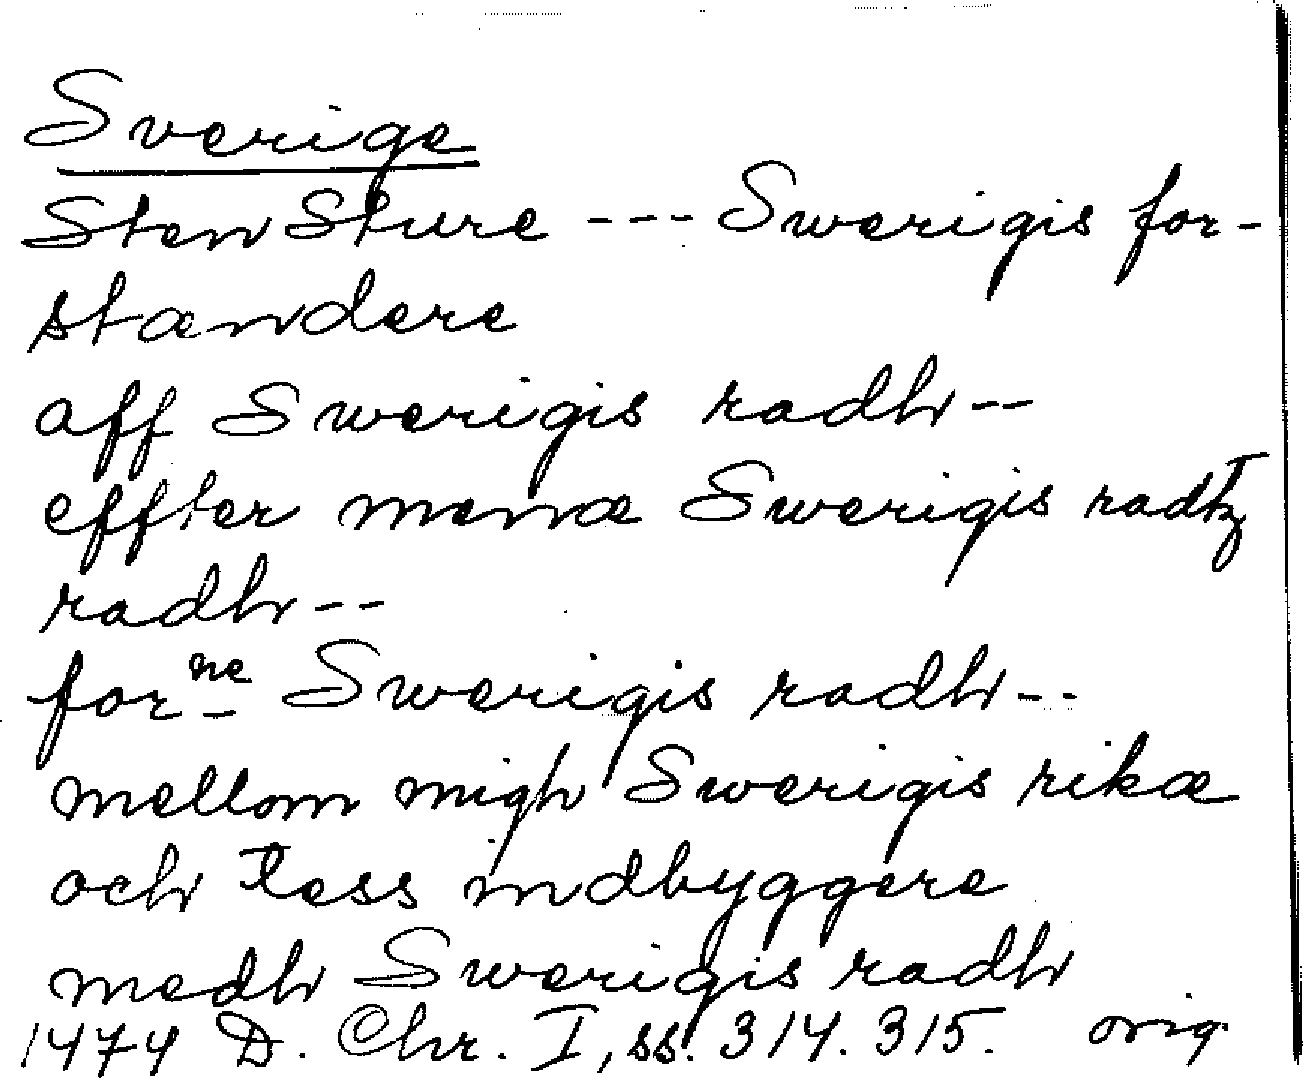 Sverige
Sten Sture --- Swerigis for-
stændere
aff Swerigis radh--
effter menæ Swerigis radtz
radh--
for ne Swerigis radh--
mellom migh Swerigis rikæ
och tess indbyggere
medh Swerigis radh
1474 D. Chr. I, ss. 314. 315. orig.